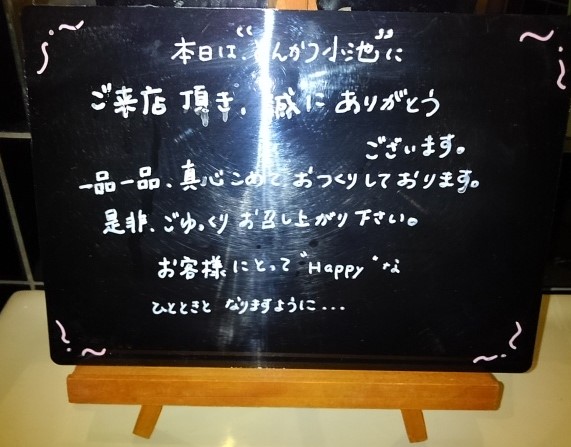 本日は、“とんかつ小池”に
ご来店 頂き、誠に ありがとう
ございます。
一品一品、真心こめて おつくりしております。
是非、ごゆっくり お召し上がり下さい。
お客様にとって “Happy”な
ひとときと なりますように...